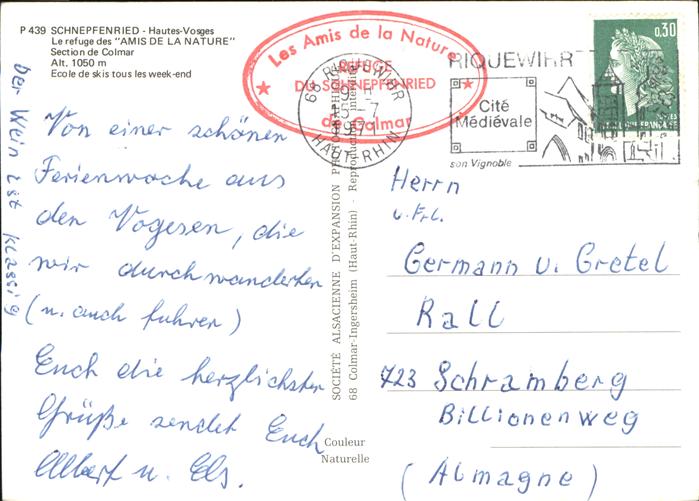 P 439 SCHNEPFENRIED - Hautes-Vosges
Le refuge des "AMIS DE LA NATURE"
Section de Colmar
Alt. 1050 m
Ecole de skis tous les week-end
Der Wein ist klassig
Von einer schönen
Ferienwoche aus
den Vogesen, die
wir durchwanderten
(u. auch fuhren)
Euch die herzlichsten
Grüße sendet Euch
Albert u. Els.
Les Amis de la Nature
REFUGE
DU SCHNEPFENRIED
de Colmar
68 RIQUEWIHR
5-7
HAUT-RHIN
RIQUEWIHR
Cité
Médiévale
son Vignoble
0,30
SOCIÉTÉ ALSACIENNE D'EXPANSION
68 Colmar-Ingersheim (Haut-Rhin) - Reproduction interdite
Couleur
Naturelle
Herrn
u. Frl.
Germann u. Gretel
Rall
723 Schramberg
Billionenweg
(Almagne)